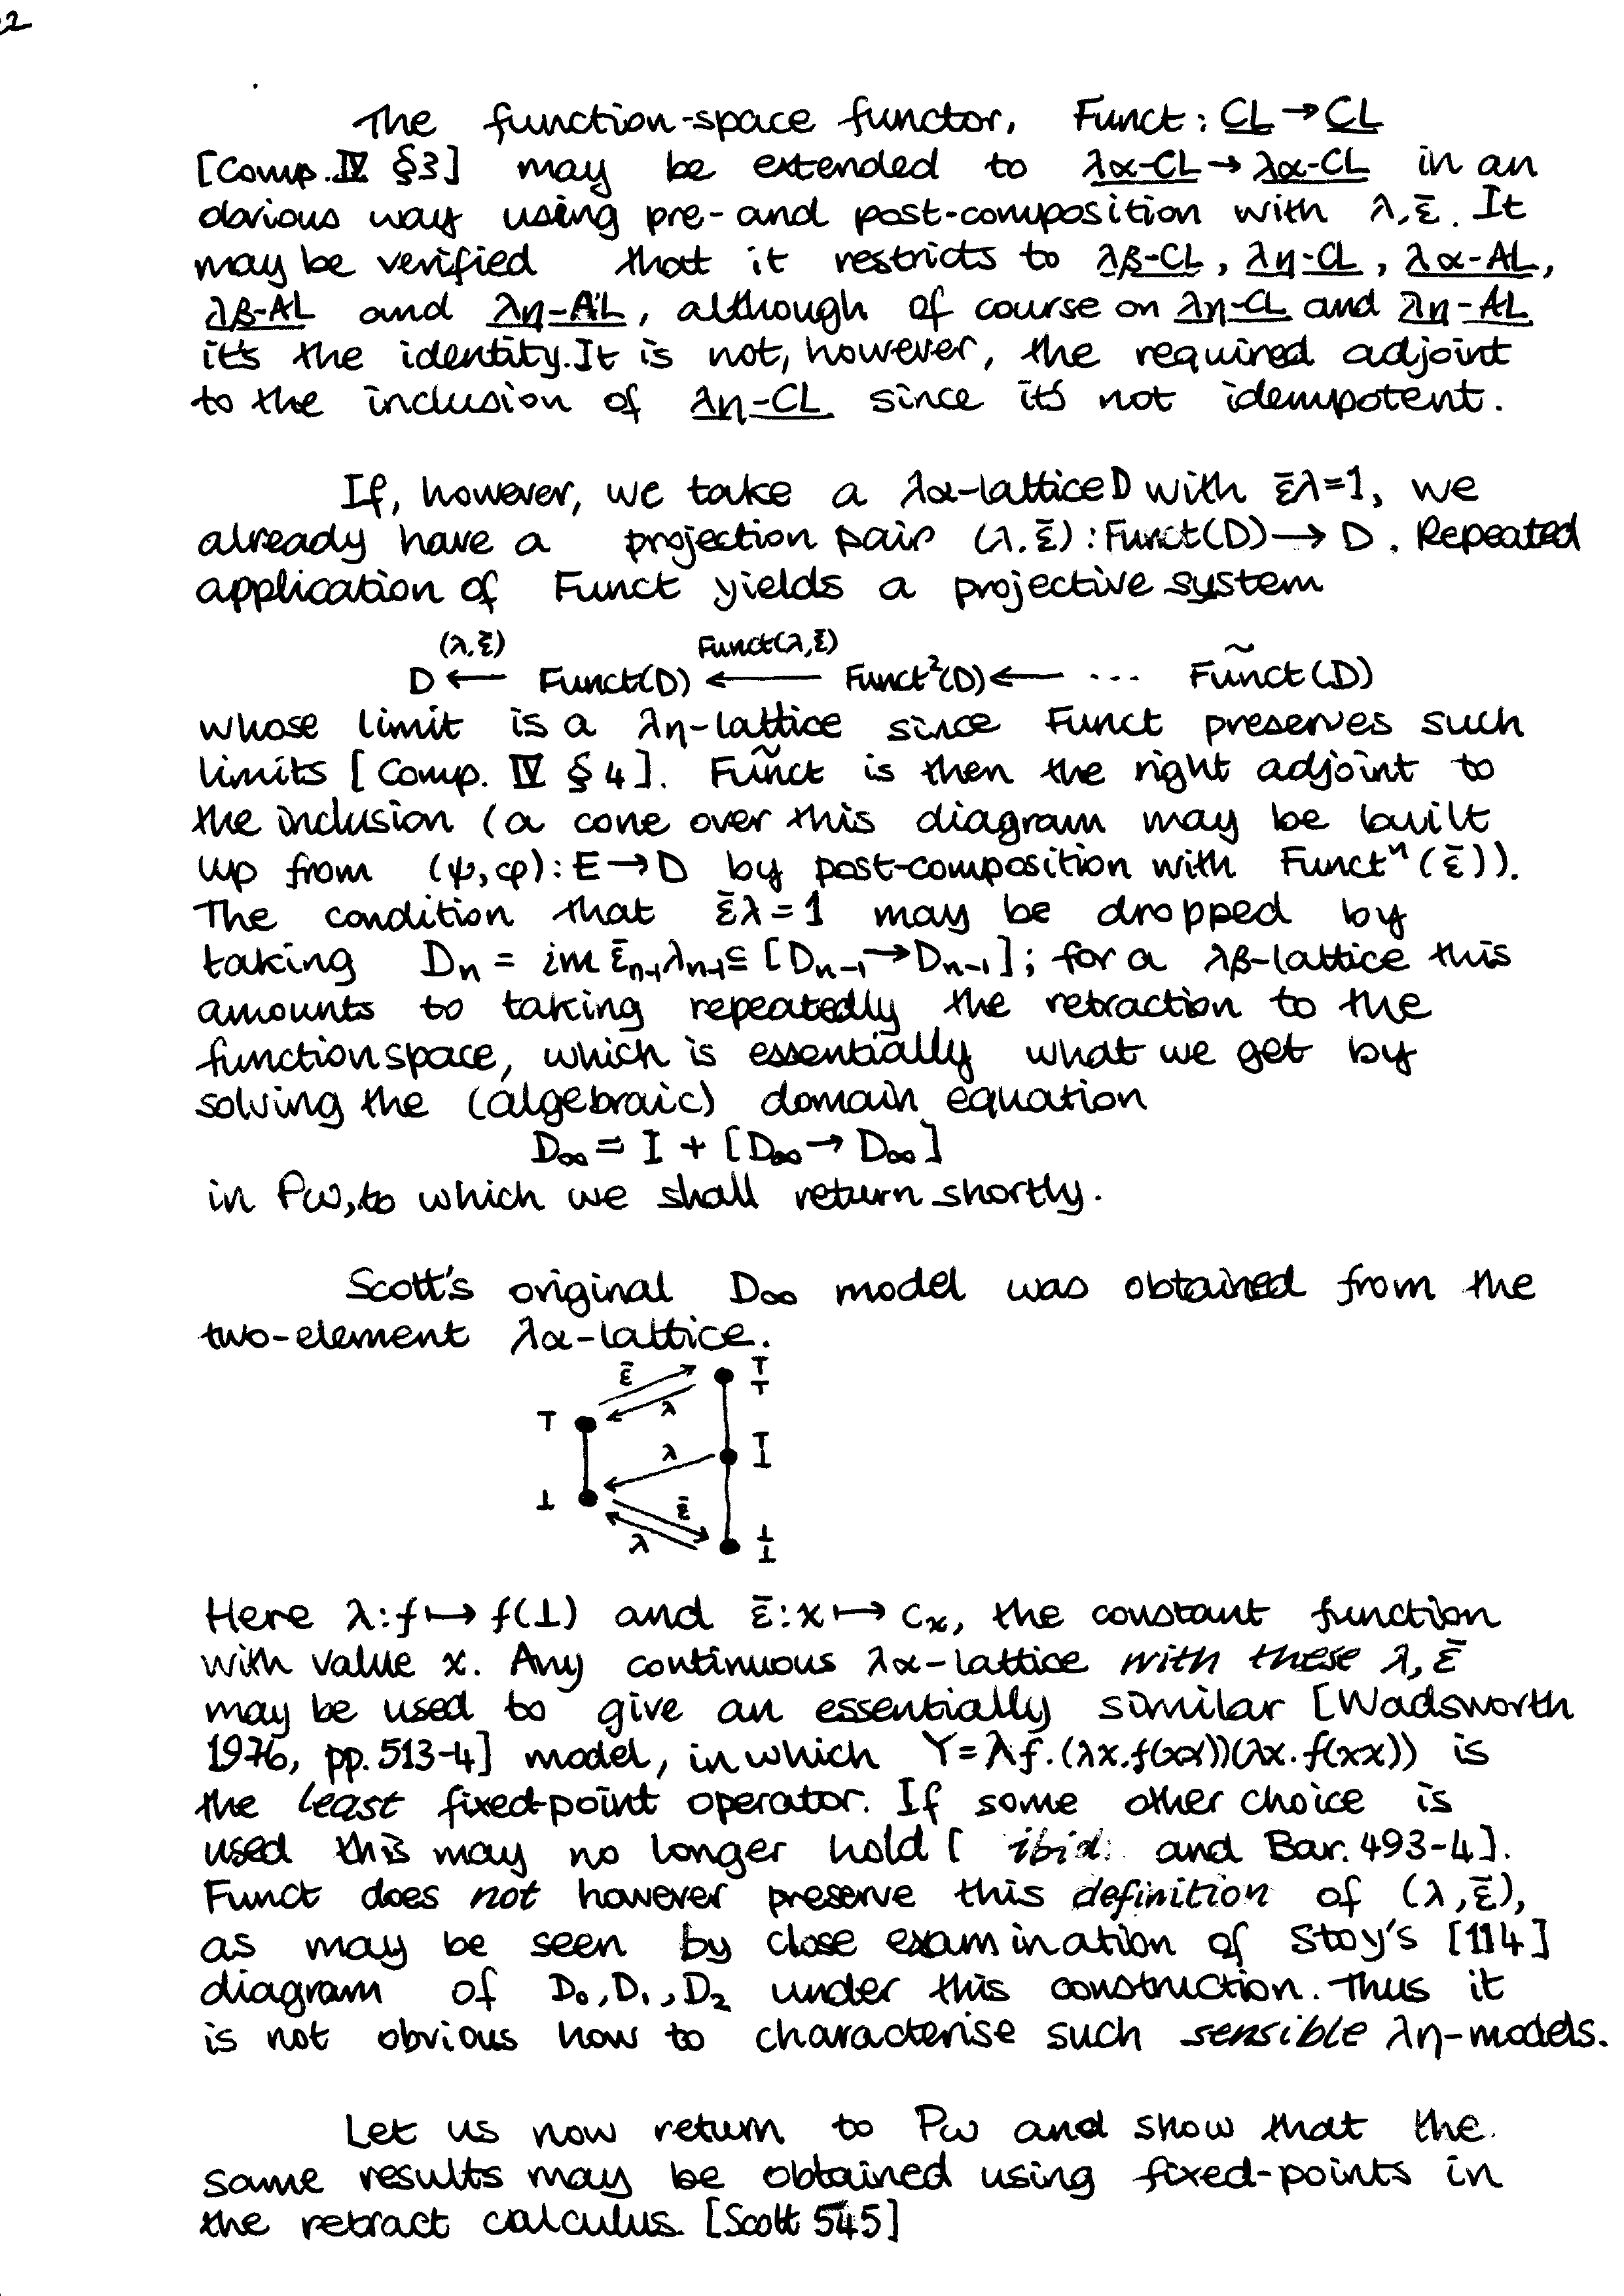 22
The function-space functor, Funct : CL → CL
[Comp. IV §3] may be extended to λα-CL → λα-CL in an
obvious way using pre- and post-composition with λ, ε̄. It
may be verified that it restricts to λβ-CL, λη-CL, λα-AL,
λβ-AL and λη-AL, although of course on λη-CL and λη-AL
it's the identity. It is not, however, the required adjoint
to the inclusion of λη-CL since it's not idempotent.
If, however, we take a λα-lattice D with ε̄λ=1, we
already have a projection pair (λ, ε̄) : Funct(D) → D. Repeated
application of Funct yields a projective system
(λ,ε̄) Funct(λ,ε̄)
D ← Funct(D) ← Funct²(D) ← ... Fun͠ct(D)
whose limit is a λη-lattice since Funct preserves such
limits [Comp. IV §4]. Fun͠ct is then the right adjoint to
the inclusion (a cone over this diagram may be built
up from (ψ,φ): E → D by post-composition with Functⁿ(ε̄)).
The condition that ε̄λ=1 may be dropped by
taking Dₙ = im ε̄ₙ₋₁λₙ₋₁ ⊆ [Dₙ₋₁ → Dₙ₋₁]; for a λβ-lattice this
amounts to taking repeatedly the retraction to the
function space, which is essentially what we get by
solving the (algebraic) domain equation
D∞ = I + [D∞ → D∞]
in Pω, to which we shall return shortly.
Scott's original D∞ model was obtained from the
two-element λα-lattice.
ε̄ ⊤
λ ⊤
⊤
λ I
⊥
ε̄ ⊥
λ ⊥
Here λ: f ↦ f(⊥) and ε̄: x ↦ cₓ, the constant function
with value x. Any continuous λα-lattice with these λ, ε̄
may be used to give an essentially similar [Wadsworth
1976, pp. 513-4] model, in which Y = λf.(λx.f(xx))(λx.f(xx)) is
the least fixed-point operator. If some other choice is
used this may no longer hold [ibid. and Bar. 493-4].
Funct does not however preserve this definition of (λ, ε̄),
as may be seen by close examination of Stoy's [114]
diagram of D₀, D₁, D₂ under this construction. Thus it
is not obvious how to characterise such sensible λη-models.
Let us now return to Pω and show that the
same results may be obtained using fixed-points in
the retract calculus. [Scott 545]